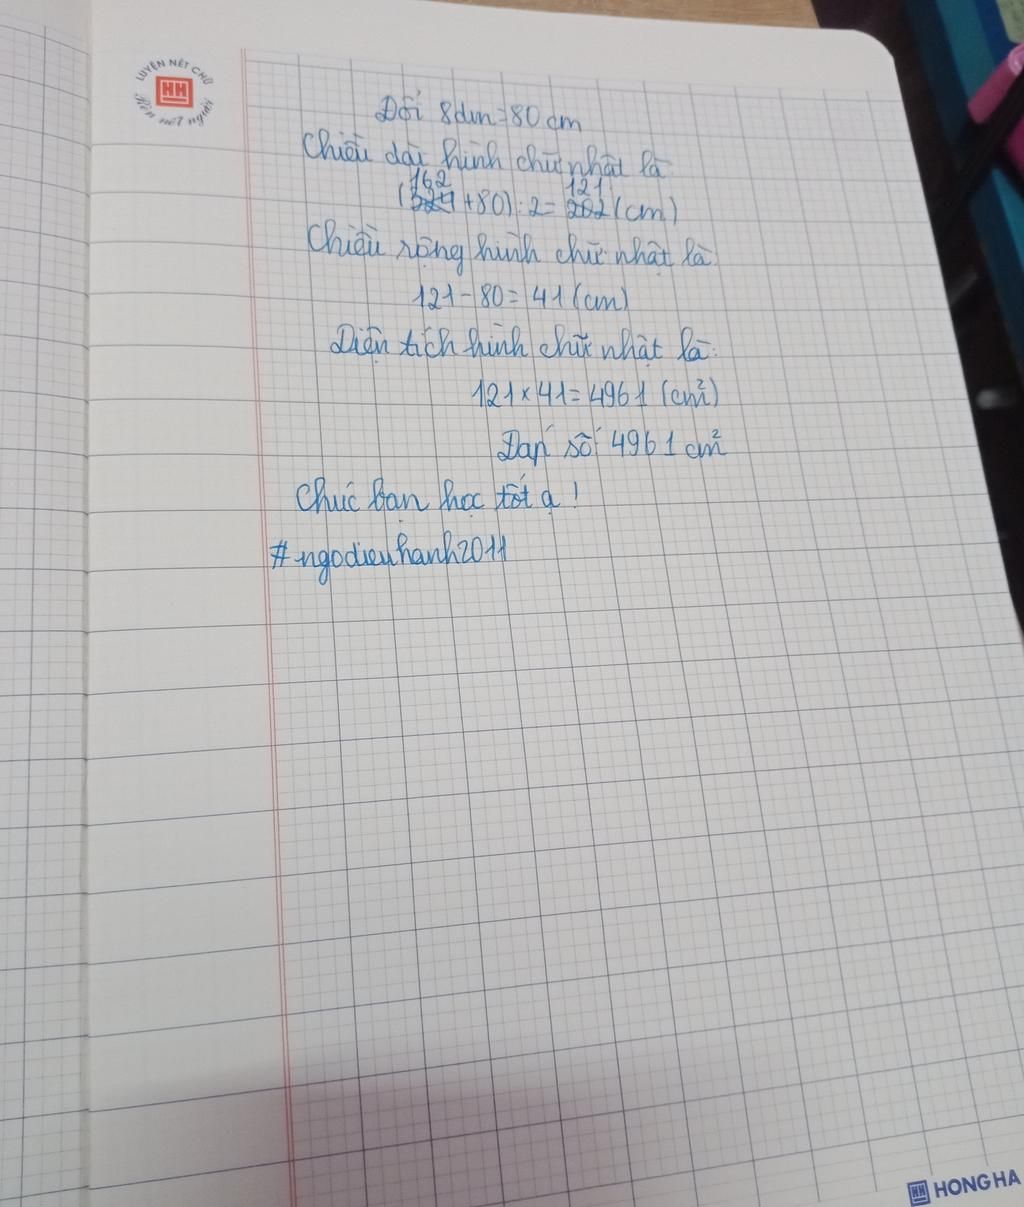 LUYỆN NÉT CHỮ
HH
Rèn nết người
Đổi 8dm=80cm
Chiều dài hình chữ nhật là:
162 121
(324+80):2=202(cm)
Chiều rộng hình chữ nhật là:
121-80=41(cm)
Diện tích hình chữ nhật là:
121×41=4961(cm²)
Đáp số 4961cm²
Chúc bạn học tốt ạ!
#ngodieuhanh2011
HH HONG HA